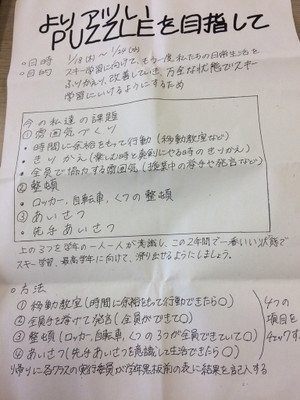 よりアツい
PUZZLEを目指して
○日時 1/18(月) ～ 1/26(火)
○目的 スキー学習に向けて、もう一度私たちの日常生活を
ふりかえり、改善していき、万全な状態でスキー
学習にいけるようにするため
今の私達の課題
①雰囲気づくり
・時間に余裕をもって行動(移動教室など)
・きりかえ(楽しむ時と真剣にやる時のきりかえ)
・全員で協力する雰囲気(授業中の挙手や発言など)
②整頓
・ロッカー、自転車、くつの整頓
③あいさつ
・先手あいさつ
上の3つを学年の一人一人が意識し、この2年間で一番いい状態で
スキー学習、最高学年に向けて、滑り出せるようにしましょう。
○方法
①移動教室(時間に余裕をもって行動できたら○)
②全員手を挙げて発言(全員ができて○)
③整頓(ロッカー、自転車、くつの3つが全員できていて○)
④あいさつ(先手あいさつを意識して生活できたら○)
4つの
項目を
チェックする。
帰りに各クラスの実行委員が学年黒板前の表に結果を記入する